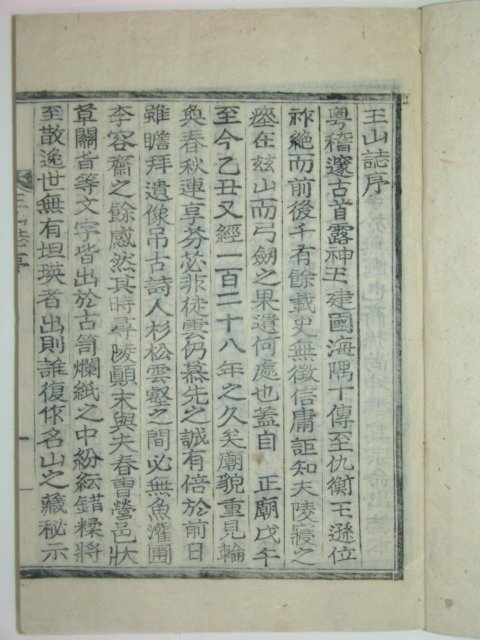 王山誌序
粤稽邃古首露神王建國海隅十傳至仇衡王遜位
祚絶而前後千有餘載史無徵信庸詎知夫陵寢之
瘞在玆山而弓劒之果遺何處也蓋自 正廟戊午
至今乙丑又經一百二十八年之久矣廟貌重見輪
奐春秋連享芬苾非徒雲仍慕先之誠有倍於前日
雖瞻拜遺像吊古詩人杉松雲壑之間必無魚灌圃
李容齋之餘感然其時尋陵顚末與夫春曺營邑狀
草關旨等文字皆出於古笥爛紙之中紛紜錯糅將
至散逸世無有坦瑛者出則誰復作名山之藏秘示
王山誌序